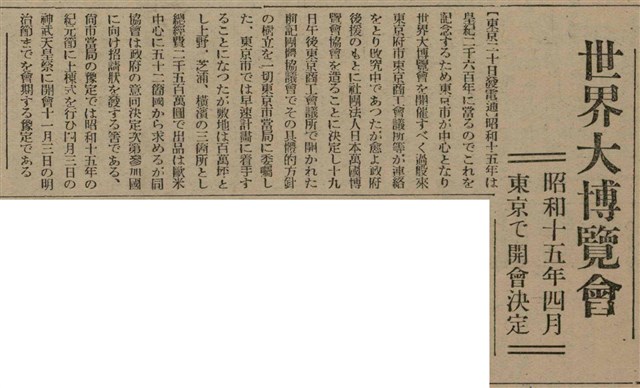 世界大博覽會
昭和十五年四月
東京で開會決定
【東京二十日發電通】昭和十五年は
皇紀二千六百年に當るのでこれを
記念するため東京市が中心となり
世界大博覽會を開催すべく過般來
東京府市東京商工會議所等が連絡
をとり攻究中であつたが愈よ政府
後援のもとに社團法人日本萬國博
覽會協會を造ることに決定し十九
日午後東京商工會議所で開かれた
前記團體協議會でその具體的方針
の樹立を一切東京市當局に委囑し
た、東京市では早速計畫に着手す
ることになつたが敷地は百萬坪と
し上野、芝浦、橫濱の三箇所とし
總經費二千五百萬圓で出品は歐米
中心に五十二箇國から求めるが同
協會は政府の意向決定次第參加國
に向け招請狀を發する筈である、
尙市當局の豫定では昭和十五年の
紀元節に上棟式を行ひ四月三日の
神武天皇祭に開會十一月三日の明
治節までを會期する豫定である